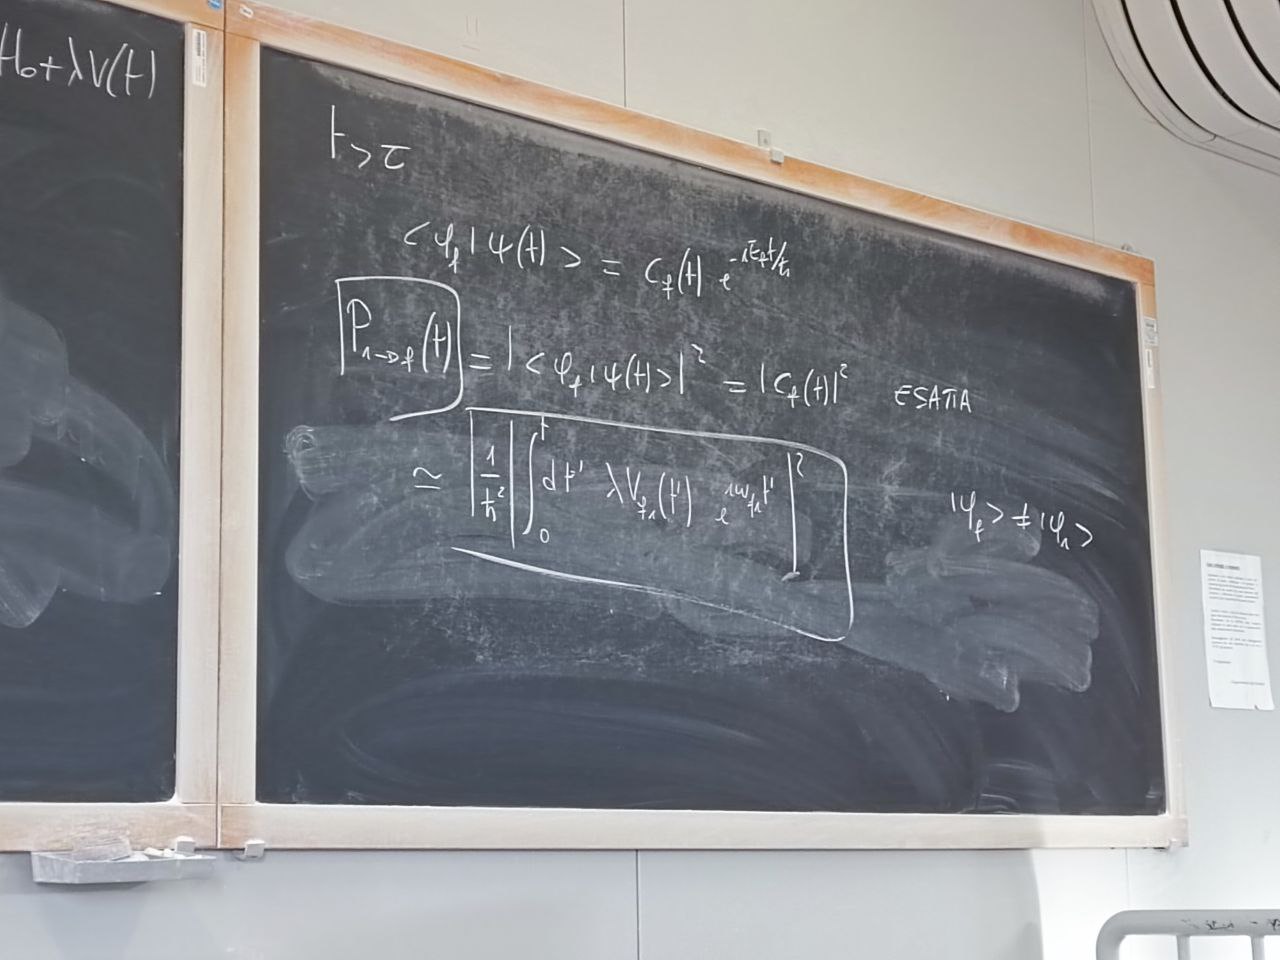 H₀+λV(t)
t>τ
<φ_f|ψ(t)> = C_f(t) e^{-iE_f t/ħ}
P_{i→f}(t) = |<φ_f|ψ(t)>|² = |C_f(t)|² ESATTA
≃ 1/ħ² |∫₀ᵗ dt' λV_{fi}(t') e^{iω_{fi}t'}|²
|φ_f> ≠ |φ_i>